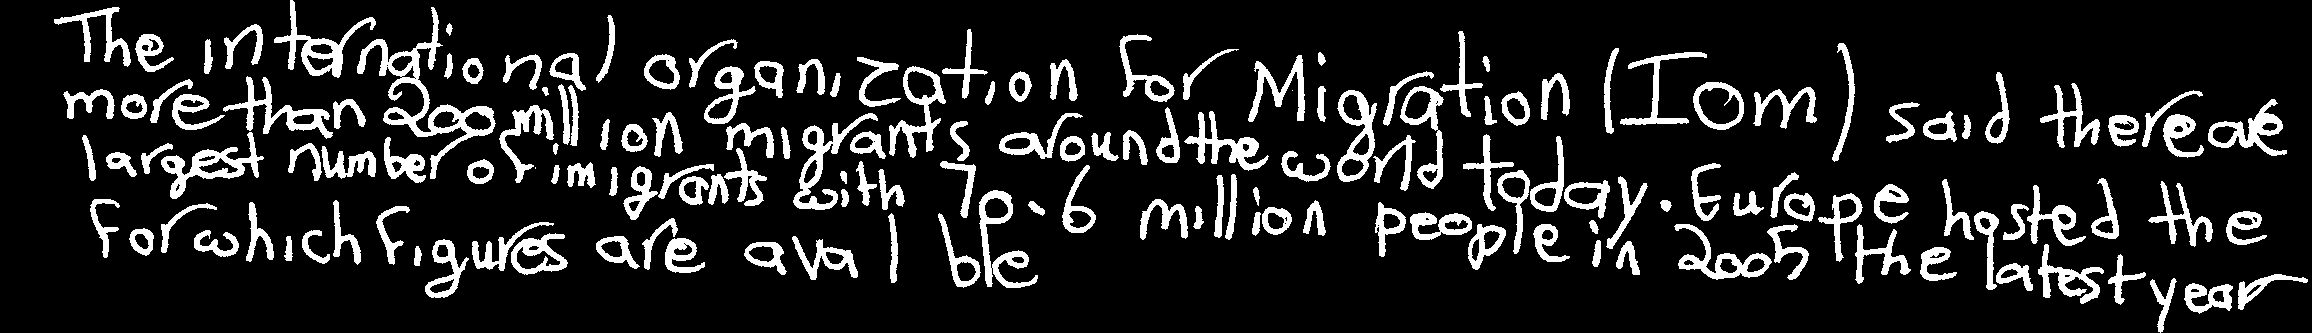 The international organization for Migration (Iom) said there are
more than 200 million migrants around the world today. Europe hosted the
largest number of imigrants with 70.6 million people in 2005 the latest year
for which figures are avalble